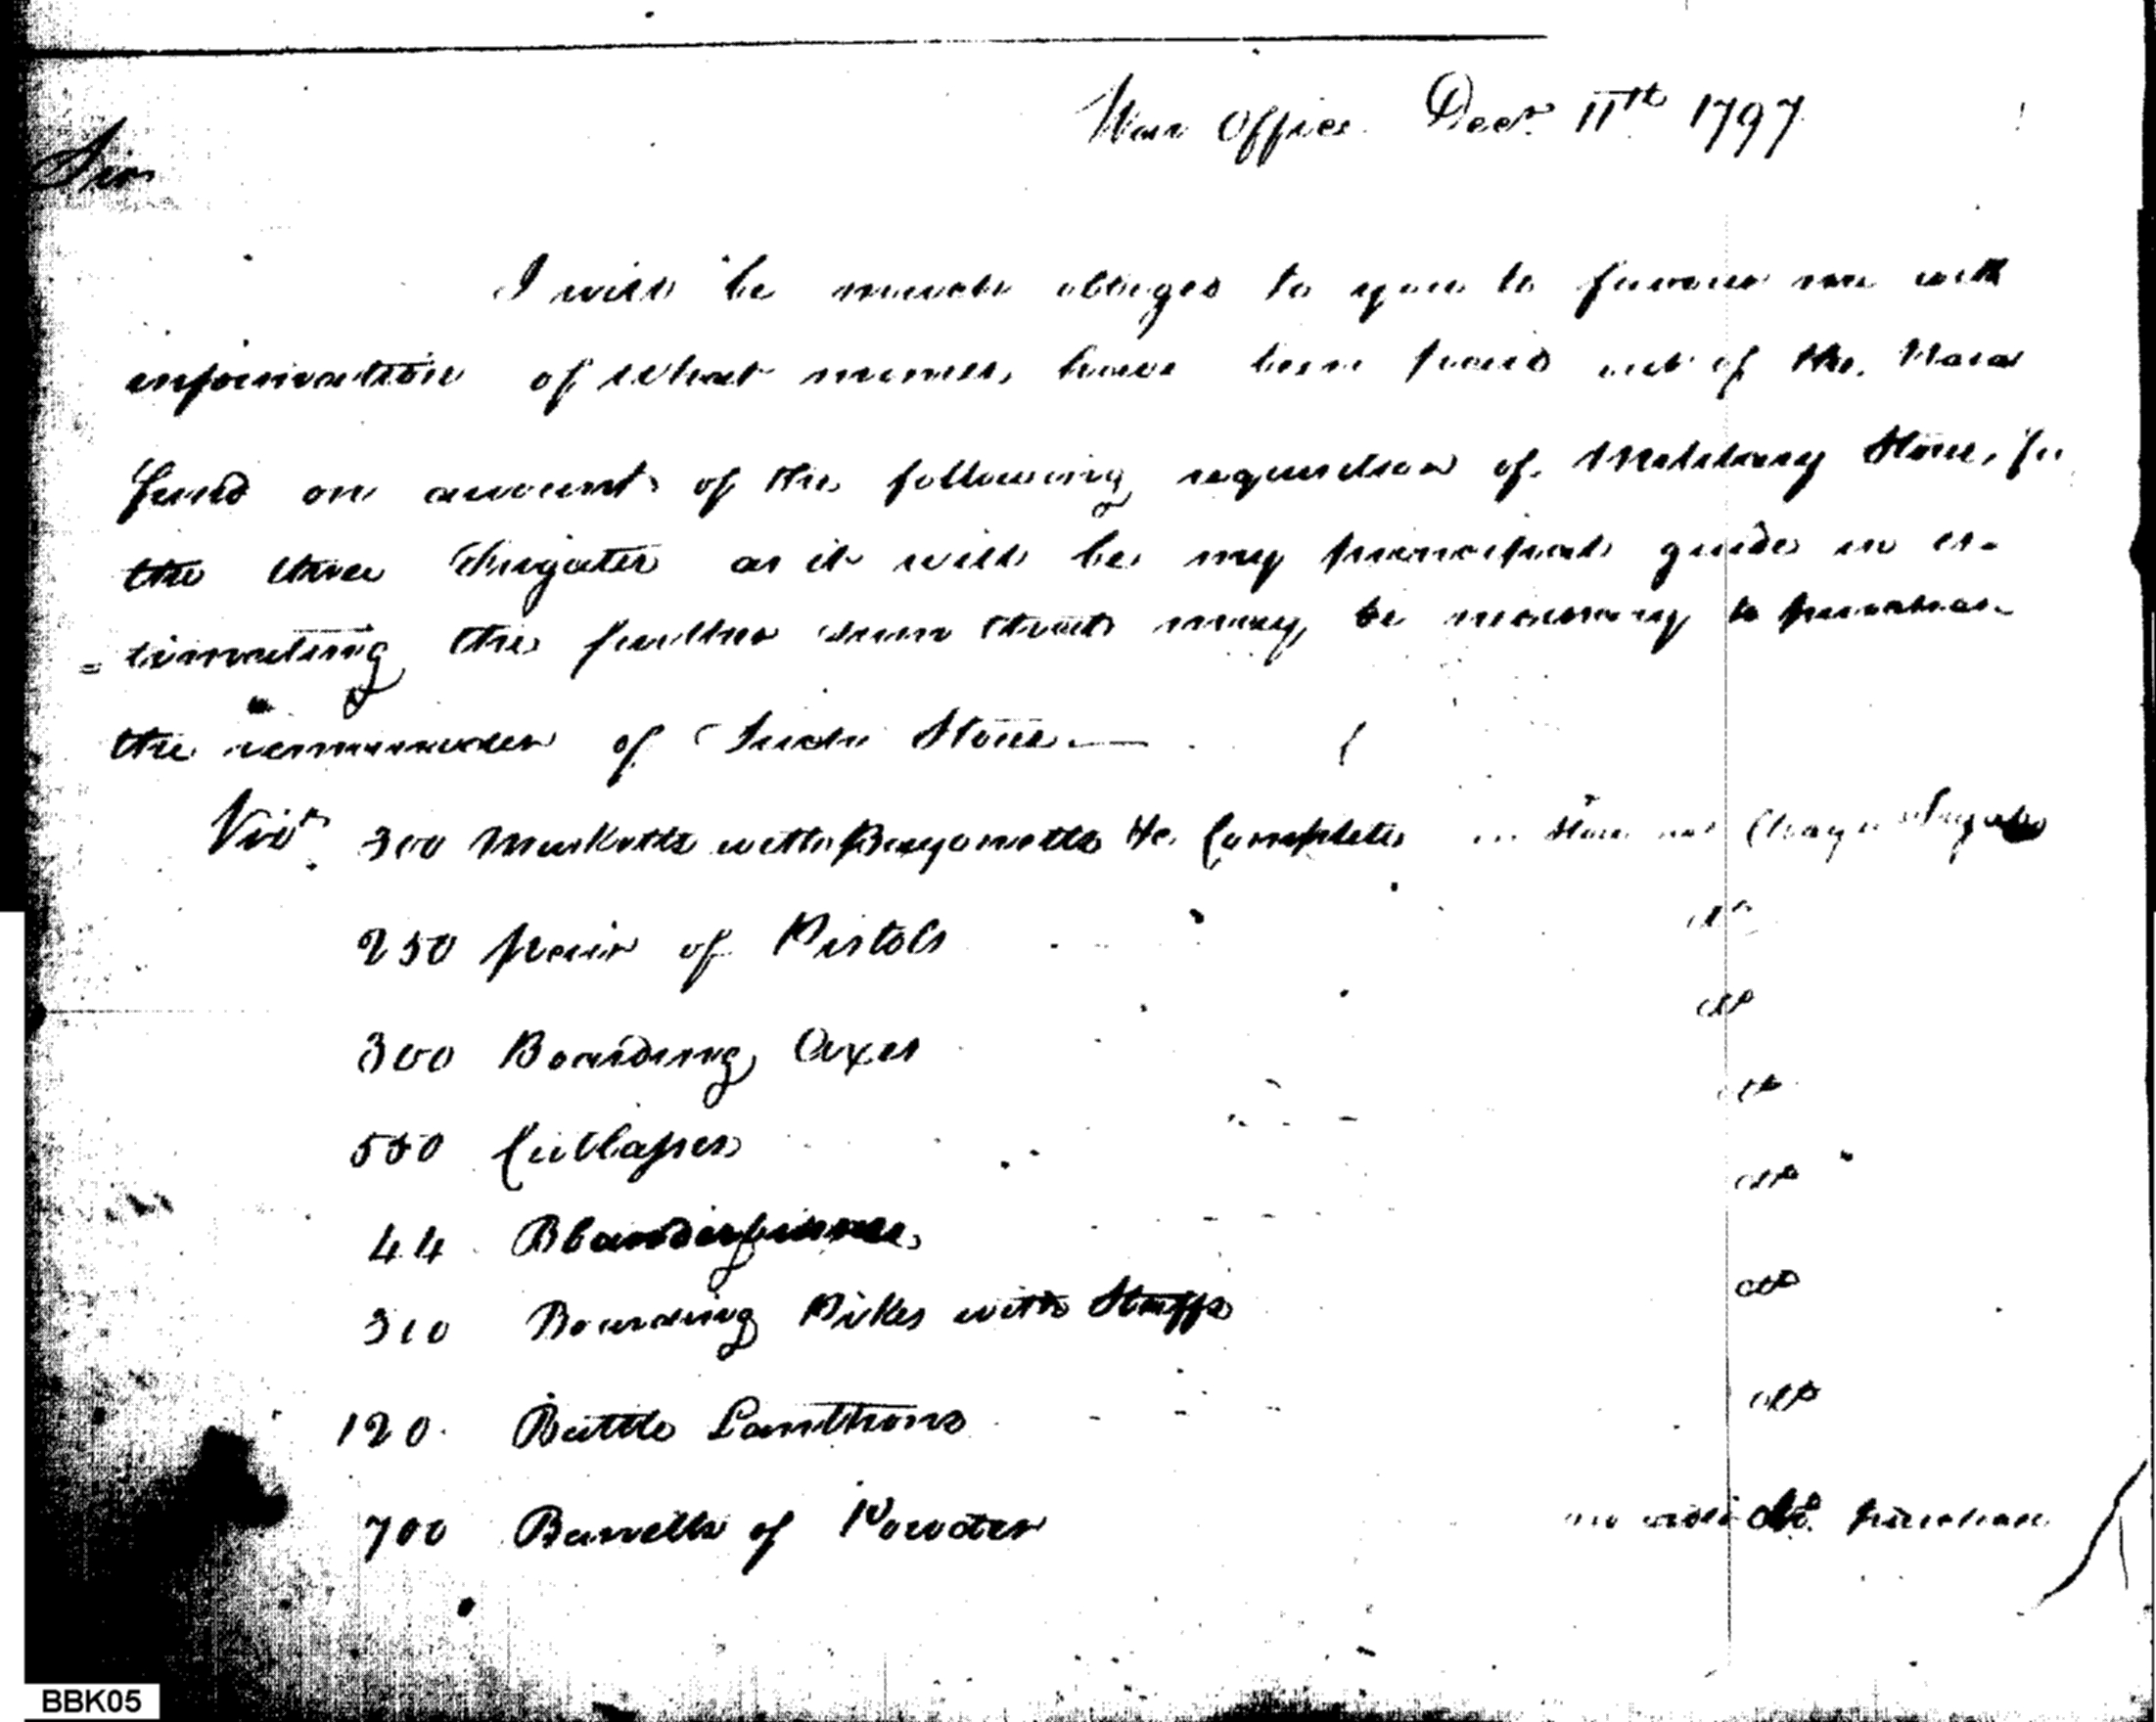 War Office Decr 11th 1797
Sir
I will be much obliged to you to favour me with
information of what monies have been paid out of the Naval
fund on account of the following requisition of Military Stores for
the three Frigates as it will be my principal guide in es-
=timating the further sum that may be necessary to purchase
the remainder of Such Stores.—
Vizt 300 Musketts with Bayonetts &c. Complete in Store not Frigate
250 pair of Pistols do
300 Boarding Axes do
550 Cutlasses do
44 Blunderbusses do
310 Boarding Pikes with Staffs do
120. Battle Lanthorns do
700 Barrells of Powder do. purchase
BBK05